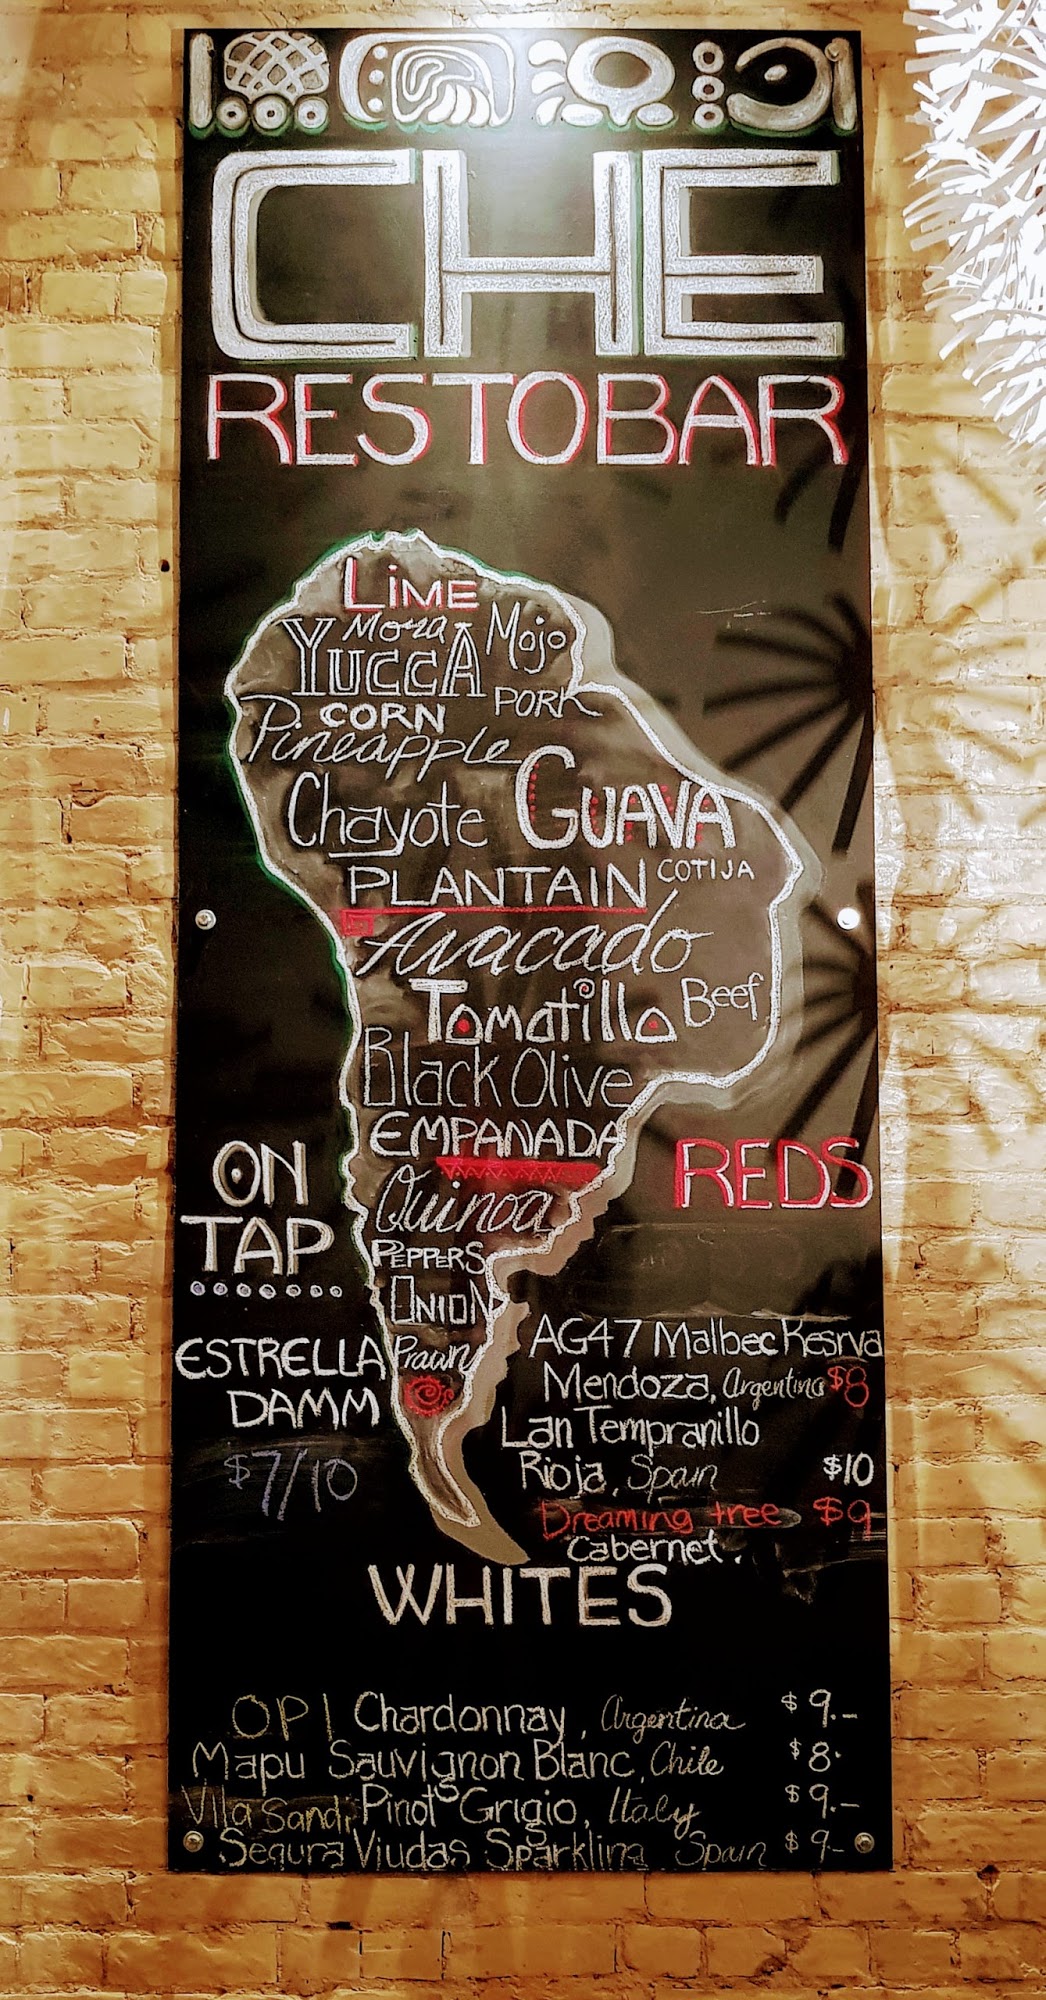 CHE
RESTOBAR
LiME
Mora
YUCCA
Mojo
CORN
PORK
Pineapple
Chayote
GUAVA
PLANTAIN
COTIJA
Avacado
Tomatillo
Beef
Black Olive
EMPANADA
Quinoa
PEPPERS
ONION
Prawn
ON
TAP
ESTRELLA
DAMM
$7/10
REDS
AG47 Malbec Resrva
Mendoza, Argentina $8
Lan Tempranillo
Rioja, Spain $10
Dreaming tree $9
Cabernet.
WHITES
OPI Chardonnay, Argentina $9.-
Mapu Sauvignon Blanc, Chile $8.
Villa Sandi Pinot Grigio, Italy $9.-
Segura Viudas Sparkling Spain $9-